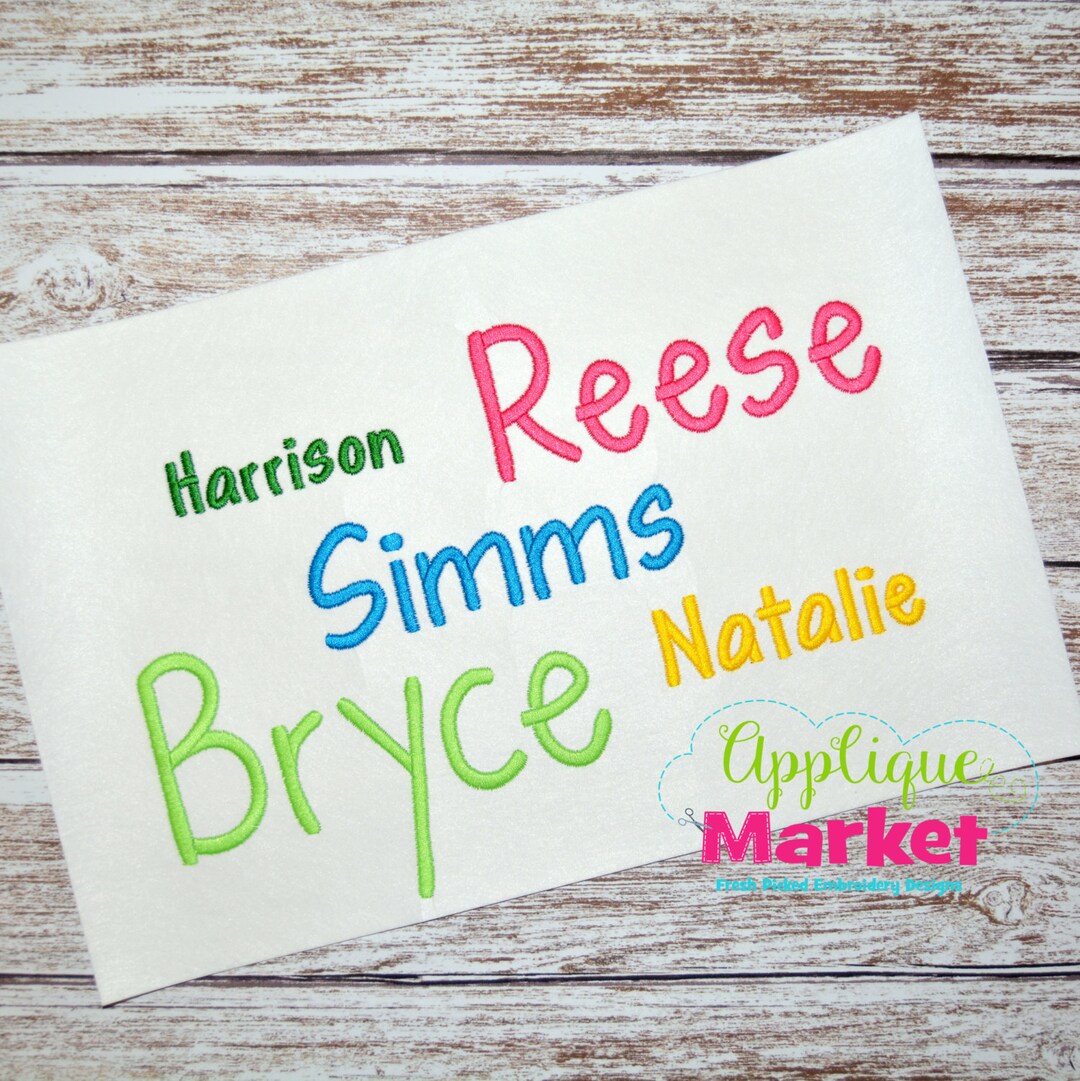 Reese
Harrison
Simms
Natalie
Bryce
Applique
Market
Fresh Picked Embroidery Designs